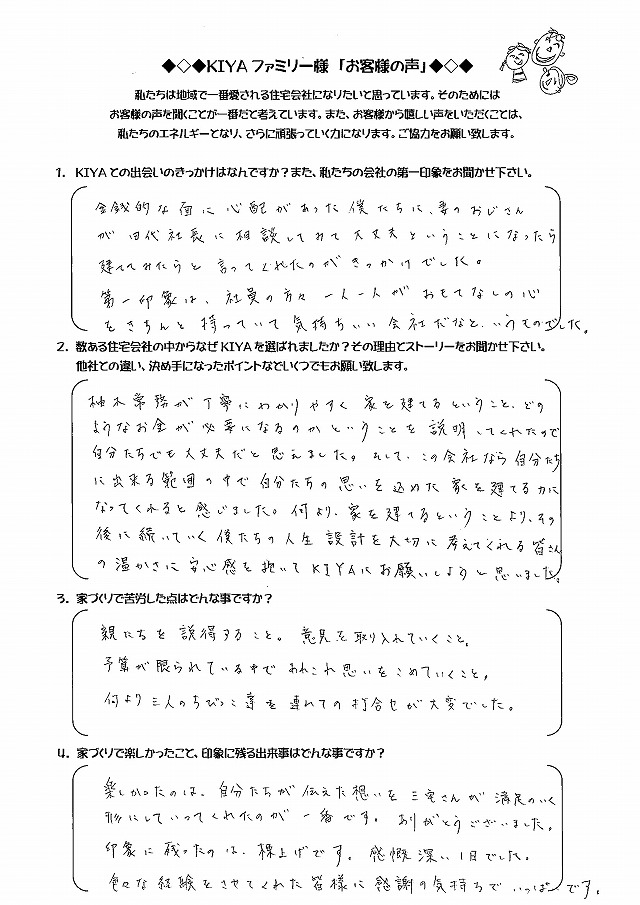 ◆◇◆KIYAファミリー様「お客様の声」◆◇◆
私たちは地域で一番愛される住宅会社になりたいと思っています。そのためには
お客様の声を聞くことが一番だと考えています。また、お客様から嬉しい声をいただくことは、
私たちのエネルギーとなり、さらに頑張っていく力になります。ご協力をお願い致します。
1. KIYAとの出会いのきっかけはなんですか？また、私たちの会社の第一印象をお聞かせ下さい。
金銭的な面に心配があった僕たちに、妻のおじさん
が田代社長に相談してみて大丈夫ということになったら
建ててみたらと言ってくれたのがきっかけでした。
第一印象は、社員の方々一人一人がおもてなしの心
をきちんと持っていて気持ちいい会社だなと、いうものでした。
2. 数ある住宅会社の中からなぜKIYAを選ばれましたか？その理由とストーリーをお聞かせ下さい。
他社との違い、決め手になったポイントなどいくつでもお願い致します。
柚木常務が丁寧にわかりやすく家を建てるということ、どの
ようなお金が必要になるのかということを説明してくれたので
自分たちでも大丈夫だと思えました。そして、この会社なら自分たち
に出来る範囲の中で自分たちの思いを込めた家を建てる力に
なってくれると感じました。何より、家を建てるということより、その
後に続いていく僕たちの人生設計を大切に考えてくれる皆さん
の温かさに安心感を抱いてKIYAにお願いしようと思いました。
3. 家づくりで苦労した点はどんな事ですか？
親たちを説得すること。意見を取り入れていくこと。
予算が限られている中であれこれ思いをこめていくこと。
何より三人のちびっこ達を連れての打合せが大変でした。
4. 家づくりで楽しかったこと、印象に残る出来事はどんな事ですか？
楽しかったのは、自分たちが伝えた想いを三宅さんが満足のいく
形にしていってくれたのが一番です。ありがとうございました。
印象に残ったのは、棟上げです。感慨深い1日でした。
色々な経験をさせてくれた皆様に感謝の気持ちでいっぱいです。